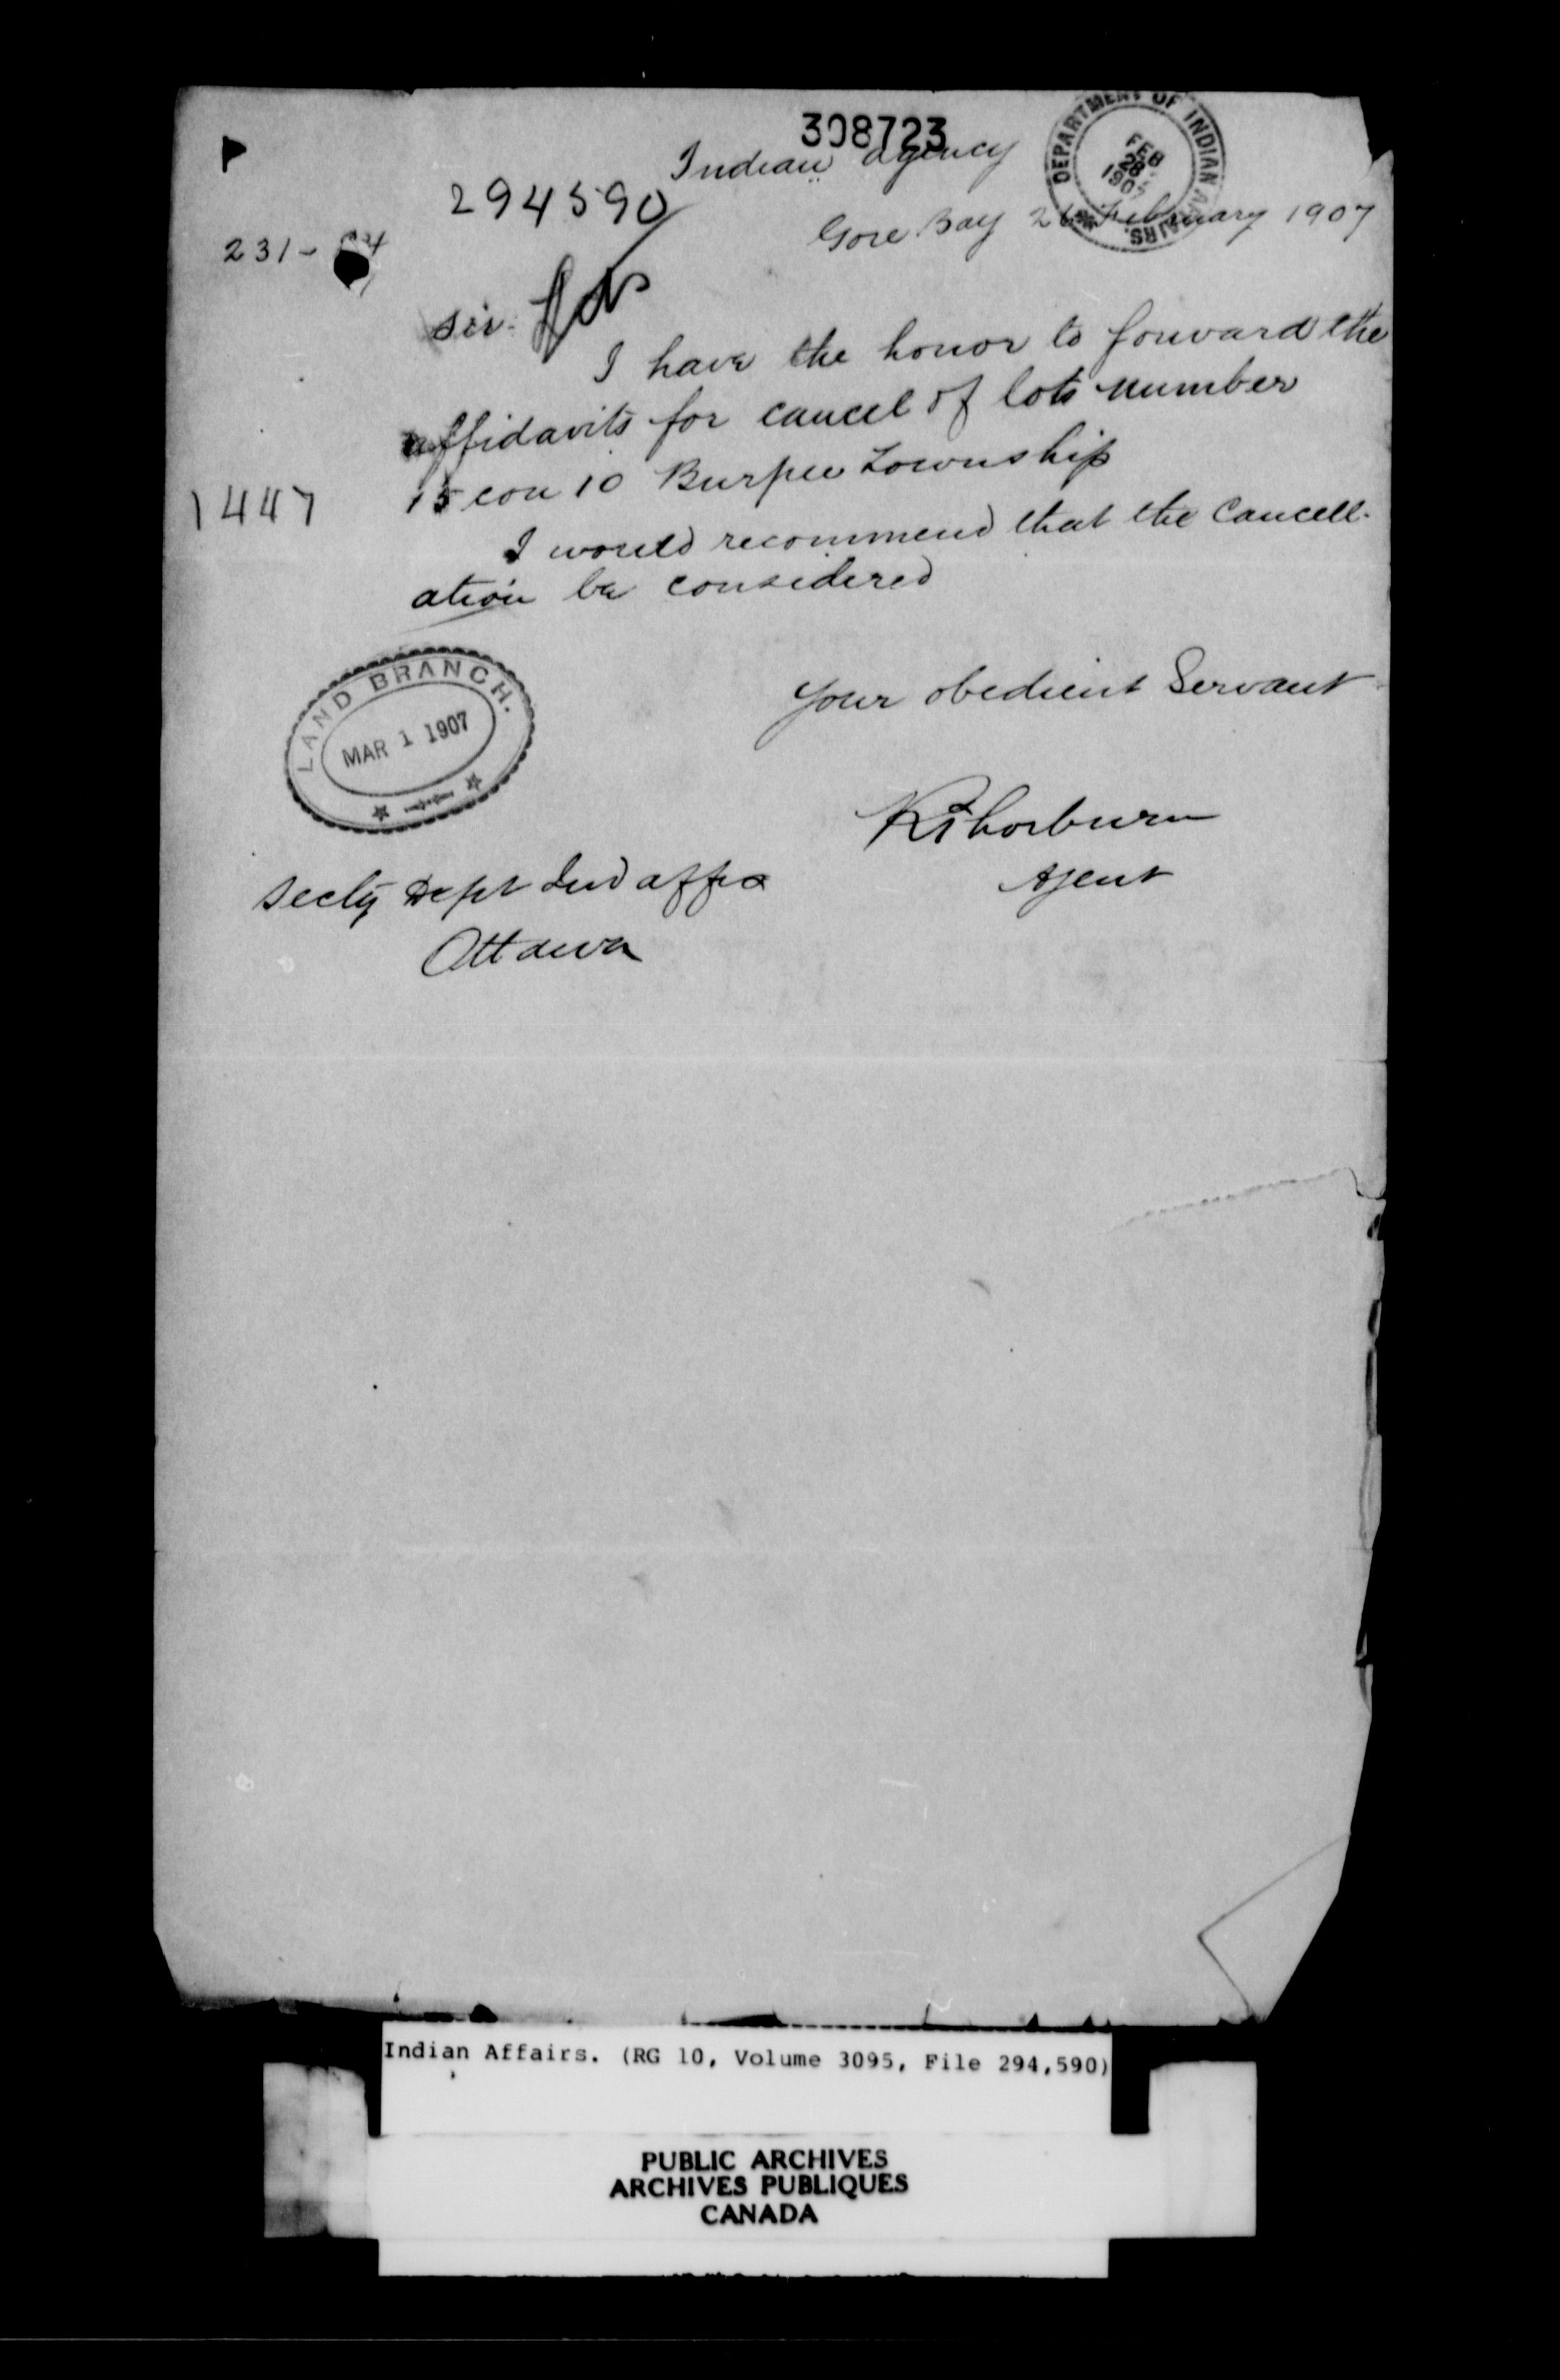 308723
Indian agency
294590
DEPARTMENT OF INDIAN AFFAIRS.
FEB
28
1907
Gore Bay 26 February 1907
231-
Sir.
I have the honor to forward the
affidavits for cancel of lots number
1447
15 con 10 Burpee Township
I would recommend that the Cancell-
ation be considered
LAND BRANCH.
MAR 1 1907
Your obedient Servant
R Thorburn
Agent
Secty Dept Ind affrs
Ottawa
Indian Affairs. (RG 10, Volume 3095, File 294,590)
PUBLIC ARCHIVES
ARCHIVES PUBLIQUES
CANADA